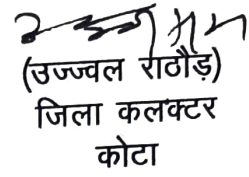 (उज्ज्वल राठौड़)
जिला कलक्टर
कोटा